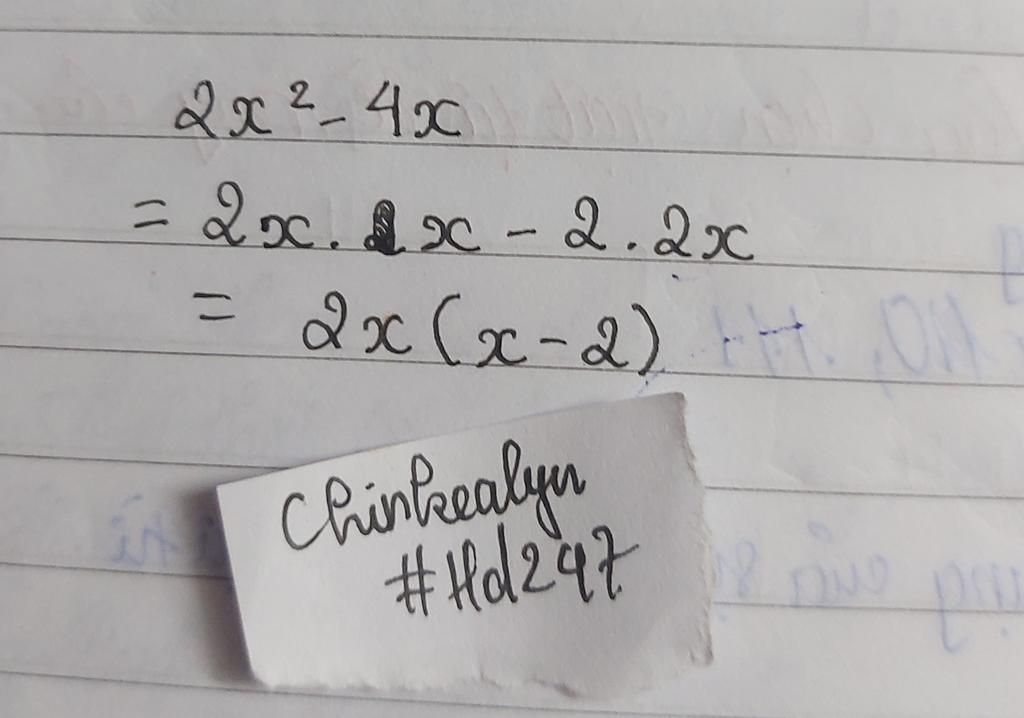 2x² - 4x
= 2x . x - 2 . 2x
= 2x (x - 2)
Chinkealyn
#Hd247